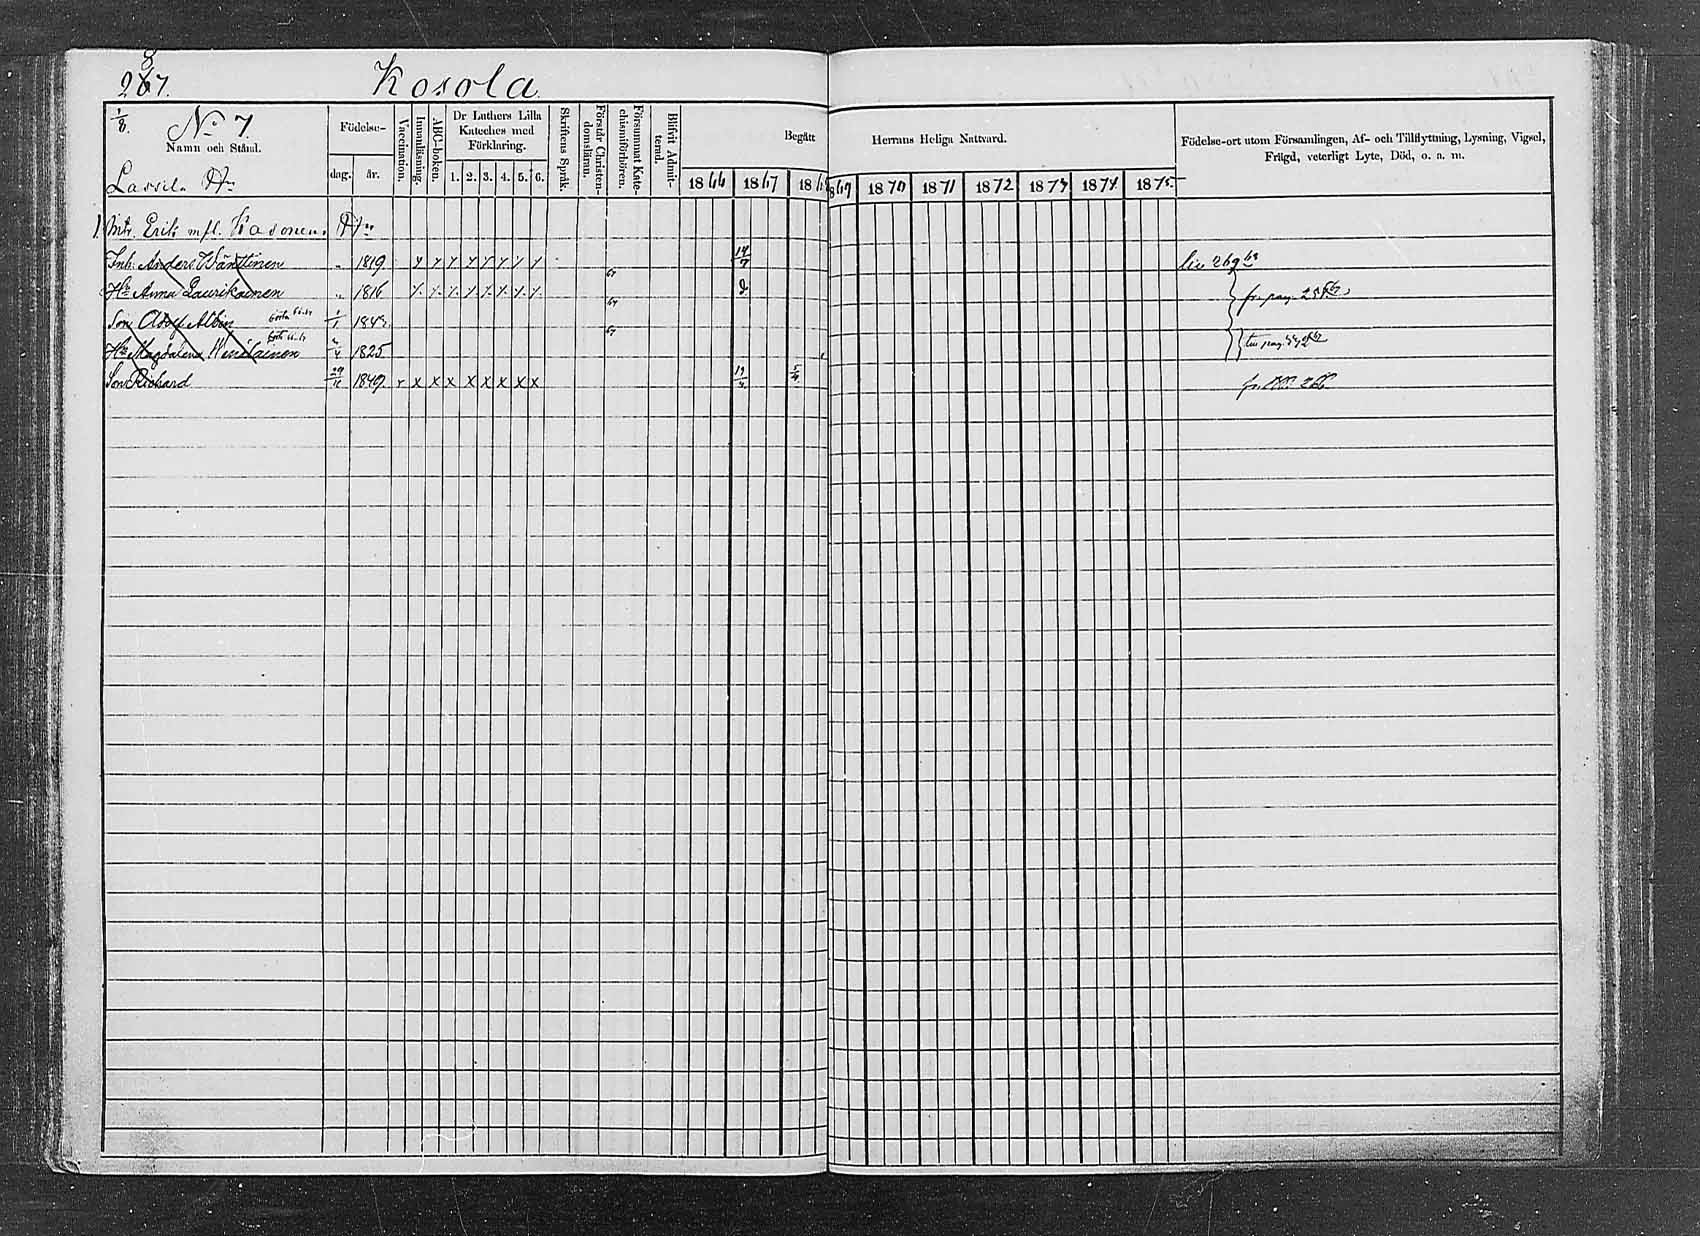 287.
Kosola.
1/8.
No 7.
Namn och Stånd.
Födelse-
dag.
år.
Vaccination.
Innanläsning.
ABC-boken.
Dr Luthers Lilla
Kateches med
Förklaring.
1. 2. 3. 4. 5. 6.
Skriftens Språk.
Förstår Christen-
domsläran.
Försummat Kate-
chismiförhören.
Blifvit Admit-
terad.
Begått
Herrans Heliga Nattvard.
1866 1867 186
1869 1870 1871 1872 1873 1874 1875
Födelse-ort utom Församlingen, Af- och Tillflyttning, Lysning, Vigsel,
Frägd, veterligt Lyte, Död, o. s. m.
Lassila
1. Erik mfl. Kasonen
Inh. Anders Wänttinen " 1819. 14/7
Hu Anna Laurikainen " 1816 67
Son Adolf Albin 1/1 1843. 67
Hu Magdalena 1825 67
Son Richard 29/11 1849. x x x x x x x x 19/4 5/4
fr. pag.
fr. 266